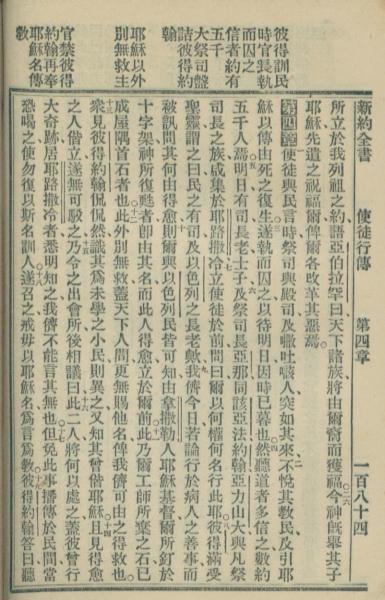 新約全書　使徒行傳　第四章　一百八十四
彼得訓民
時官長執
而囚之
信者約有
五千
大祭司
詰彼得約
翰
耶穌以外
別無救主
官禁彼得
約翰再奉
耶穌名傳
敎
所立於我列祖之約語亞伯拉罕曰天下諸族將由爾裔而獲福二六今神旣舉其子
耶穌先遣之祝福爾俾爾各改革其惡焉
第四章使徒與民言時祭司與殿司及吐人突如其來二不悅其敎民及引耶
穌以傳由死之復生三遂執而囚之以待明日因時已暮也四然聽道者多信之數約
五千人焉五明日有司長老士子六及祭司長亞那同該亞法約翰亞力山大與凡祭
司長之族咸集於耶路撒冷七立使徒於前問曰爾以何權何名行此耶八彼得滿受
聖靈謂之曰民之有司及以色列之長老歟九我儕今日若論行於病人之善事而
被訊問其何由得愈十則爾與以色列民皆可知由拿撒勒人耶穌基督爾所釘於
十字架神所復甦者卽由其名而此人得愈立於爾前十一此乃爾工師所棄之石已
成屋隅首石者也十二此外別無救蓋天下人間更無賜他名俾我儕可由之得救也
十三衆見彼得約翰侃侃然識其爲未學之小民則異之又知其曾偕耶穌十四且見得愈
之人偕立遂無可駁之十五乃令之出會所後相議曰十六此二人將何以處之蓋彼曾行
大奇跡居耶路撒冷者悉明知之我儕不能言其無也十七但免此事播傳於民間當
恐喝之使勿復以斯名訓人十八遂召之戒毋以耶穌名爲言爲敎十九彼得約翰答曰聽